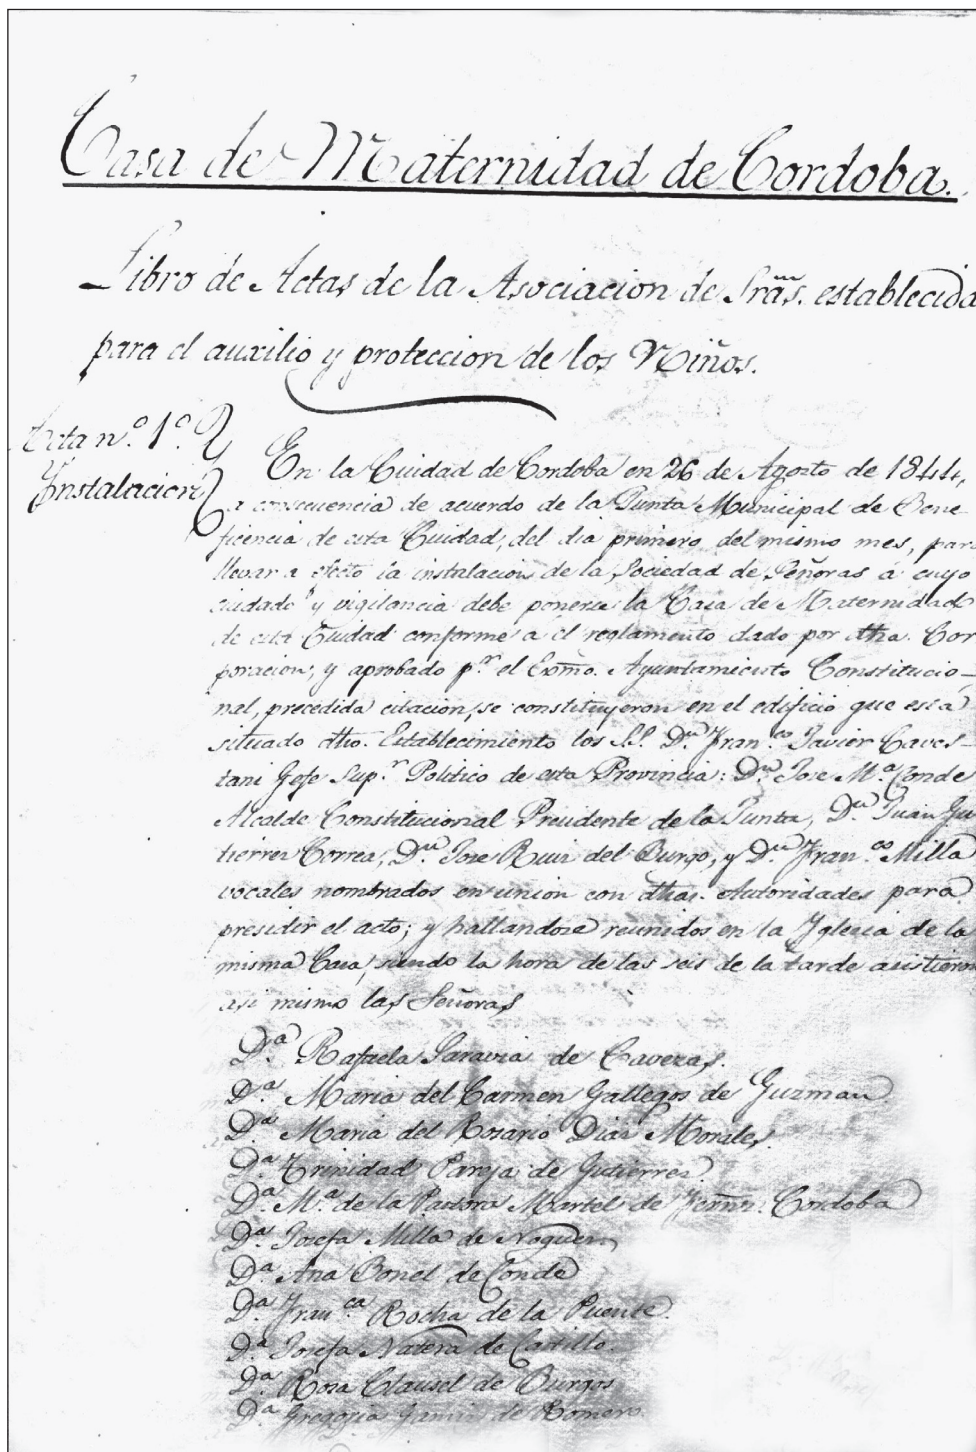 Casa de Maternidad de Cordoba.
Libro de Actas de la Asociacion de Srãs. establecida
para el auxilio y proteccion de los Niños.
Acta n.º 1.º
Instalacion
En la Ciudad de Cordoba en 26 de Agosto de 1844,
a consecuencia de acuerdo de la Junta Municipal de Bene
ficencia de esta Ciudad, del dia primero del mismo mes, para
llevar a efecto la instalacion de la Sociedad de Señoras á cuyo
cuidado y vigilancia debe ponerse la Casa de Maternidad
de esta Ciudad conforme á el reglamento dado por dha. Cor
poracion, y aprobado p.r el Exmo. Ayuntamiento Constitucio-
nal, precedida citacion, se constituyeron en el edificio que está
situado dho. Establecimiento los S.S. D.n Fran.co Javier Caves-
tani Gefe Sup.r Politico de esta Provincia: D.n Jose M.a Conde
Alcalde Constitucional Presidente de la Junta, D.n Juan Gu
tierrez Correa, D.n Jose Ruiz del Burgo, y D.n Fran.co Milla
vocales nombrados en union con dhas. Autoridades para
presidir el acto; y hallandose reunidos en la Yglesia de la
misma Casa, siendo la hora de las seis de la tarde asistieron
asi mismo las Señoras
D.a Rafaela Saravia de Cavezas.
D.a Maria del Carmen Gallegos de Guzman
D.a Maria del Rosario Diaz Morales.
D.a Trinidad Pareja de Gutierrez.
D.a M.a de la Pastora Martel de Fernz. Cordoba
D.a Josefa Milla de Noguer
D.a Ana Bonel de Conde
D.a Fran.ca Rocha de la Puente.
D.a Josefa Natera de Castillo.
D.a Rosa Clausel de Burgos
D.a Gregoria de Romero